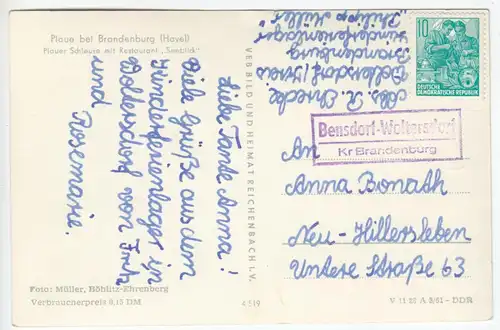 Plaue bei Brandenburg (Havel)
Plauer Schleuse mit Restaurant „Seeblick"
Liebe Tante Anna!
Viele Grüße aus dem
Kinderferienlager in
Woltersdorf von Fritz
und Rosemarie.
Foto: Müller, Böhlitz-Ehrenberg
Verbraucherpreis 0,15 DM
VEB BILD UND HEIMAT REICHENBACH I. V.
4519
Abs. R.
Woltersdorf/Kreis
Brandenburg
Kinderferienlager
„Philipp Müller"
10
DEUTSCHE
DEMOKRATISCHE REPUBLIK
Bensdorf-Woltersdorf
Kr Brandenburg
An
Anna Bonath
Neu-Hillersleben
Untere Straße 63
V 11 28 A 3/61 - DDR